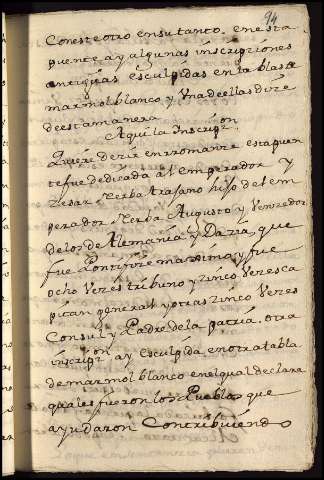 94
Con este otro en su tanto, en esta
puente ay algunas inscripciones
antiguas esculpidas en tablas de
marmol blanco y Una de ellas dize
de esta manera
Aqui la Inscripcion
Quiere dezir en rromanze esta puen
te fue dedicada al emperador y
Zesar Nerba trajano hijo del em
perador Nerba Augusto y Venzedor
de los de Alemania y Dazia, que
fue Pontifize maximo, y fue
ocho Vezes tribuno y zinco Vezes ca
pitan general y otras zinco Vezes
Consul y Padre de la patria, otra
inscripcion ay esculpida en otra tabla
de marmol blanco en el qual declara
quales fueron los Pueblos que
ayudaron Contribuiendo